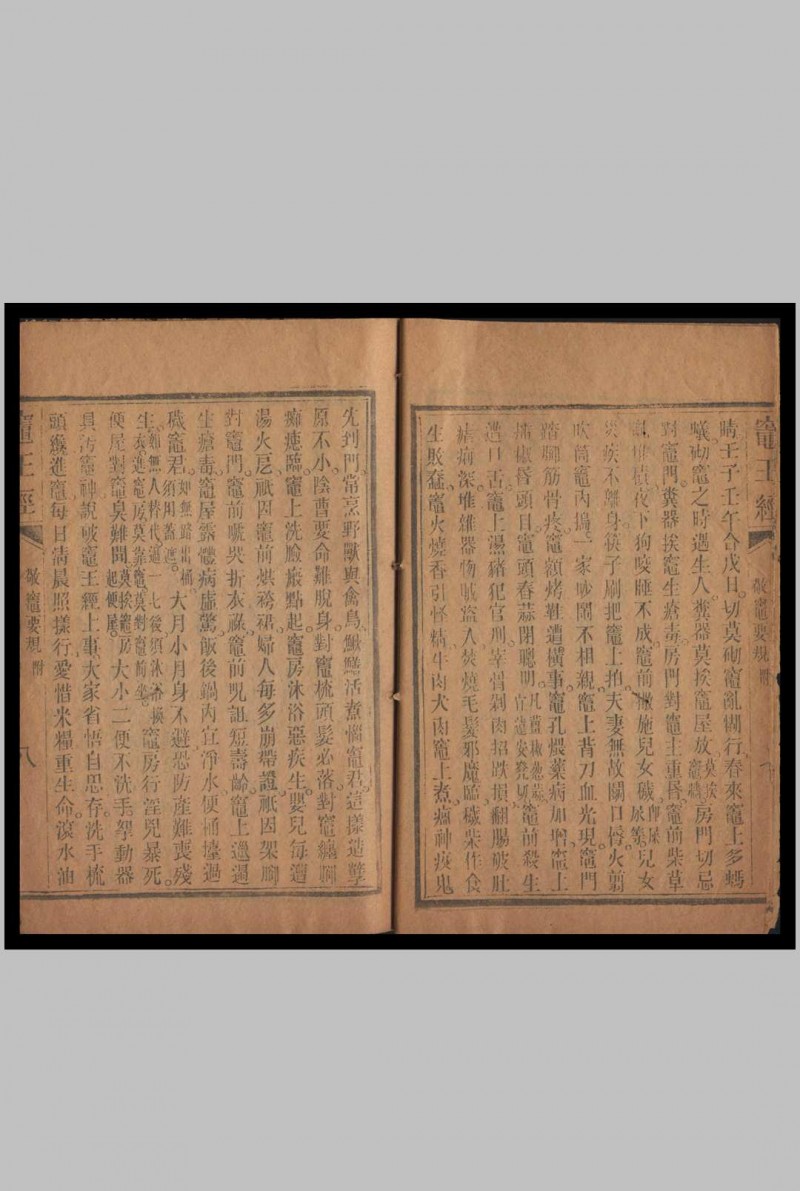 竈王經 敬竈要規 附
晴壬子壬午合戊日切莫砌竈亂開行春來竈上多螞
蟻砌竈之時遇生人糞器莫挨竈屋放莫挨竈房門切忌
對竈門糞器挨竈生瘡毒房門對竈主重昏竈前柴草
堆積夜下狗咬睡不成竈前撒施兒女穢兒女
疾不離身筷子刷把竈上拍夫妻無故鬧口唇火剪
吹筒竈內搗一家吵鬧不相親竈上昔刀血光現竈門
踏腳筋骨疼竈額烤鞋遭橫事竈孔煨藥病加增竈上
椒昏頭目竈頭春蒜閉聰明竈前殺生
遭口舌竈上湯豬犯官刑宰骨剁肉招跌損翻腸破肚
病深堆雜器物賊盜入焚燒毛髮邪魔臨穢柴作食
生敗症竈火燒香引怪精牛肉犬肉竈上煮瘟神疫鬼
先到門常烹野獸與禽鳥鰍鱔活煮惱竈君這樣造孽
原不小陰曹要命難脫身對竈梳頭髮必落對竈纏腳
臨竈上洗臉瘢點起竈房沐浴惡疾生嬰兒每遭
湯火厄祇因竈前烘袴裙婦人每多崩帶證祇因架腳
對竈門竈前號哭折衣祿竈前咒詛短壽齡竈上過
生瘡毒竈屋露體病虛驚飯後鍋內宜淨水便桶擡過
穢竈君如無路出桶須用蓋遮大月小月身不避恐防產難喪殘
生如無人替代這一七後須沐浴換衣進竈房莫靠竈莫對竈前坐竈房行淫兒暴死
便尾對竈臭難聞莫挨竈房起便屋大小二便不洗手拏動器
具汚竈神說破竈王經上事大家省悟自思存洗手梳
頭纔進竈每日清晨照樣行愛惜米糧重生命滾水油
竈王經 敬竈要規 附 八